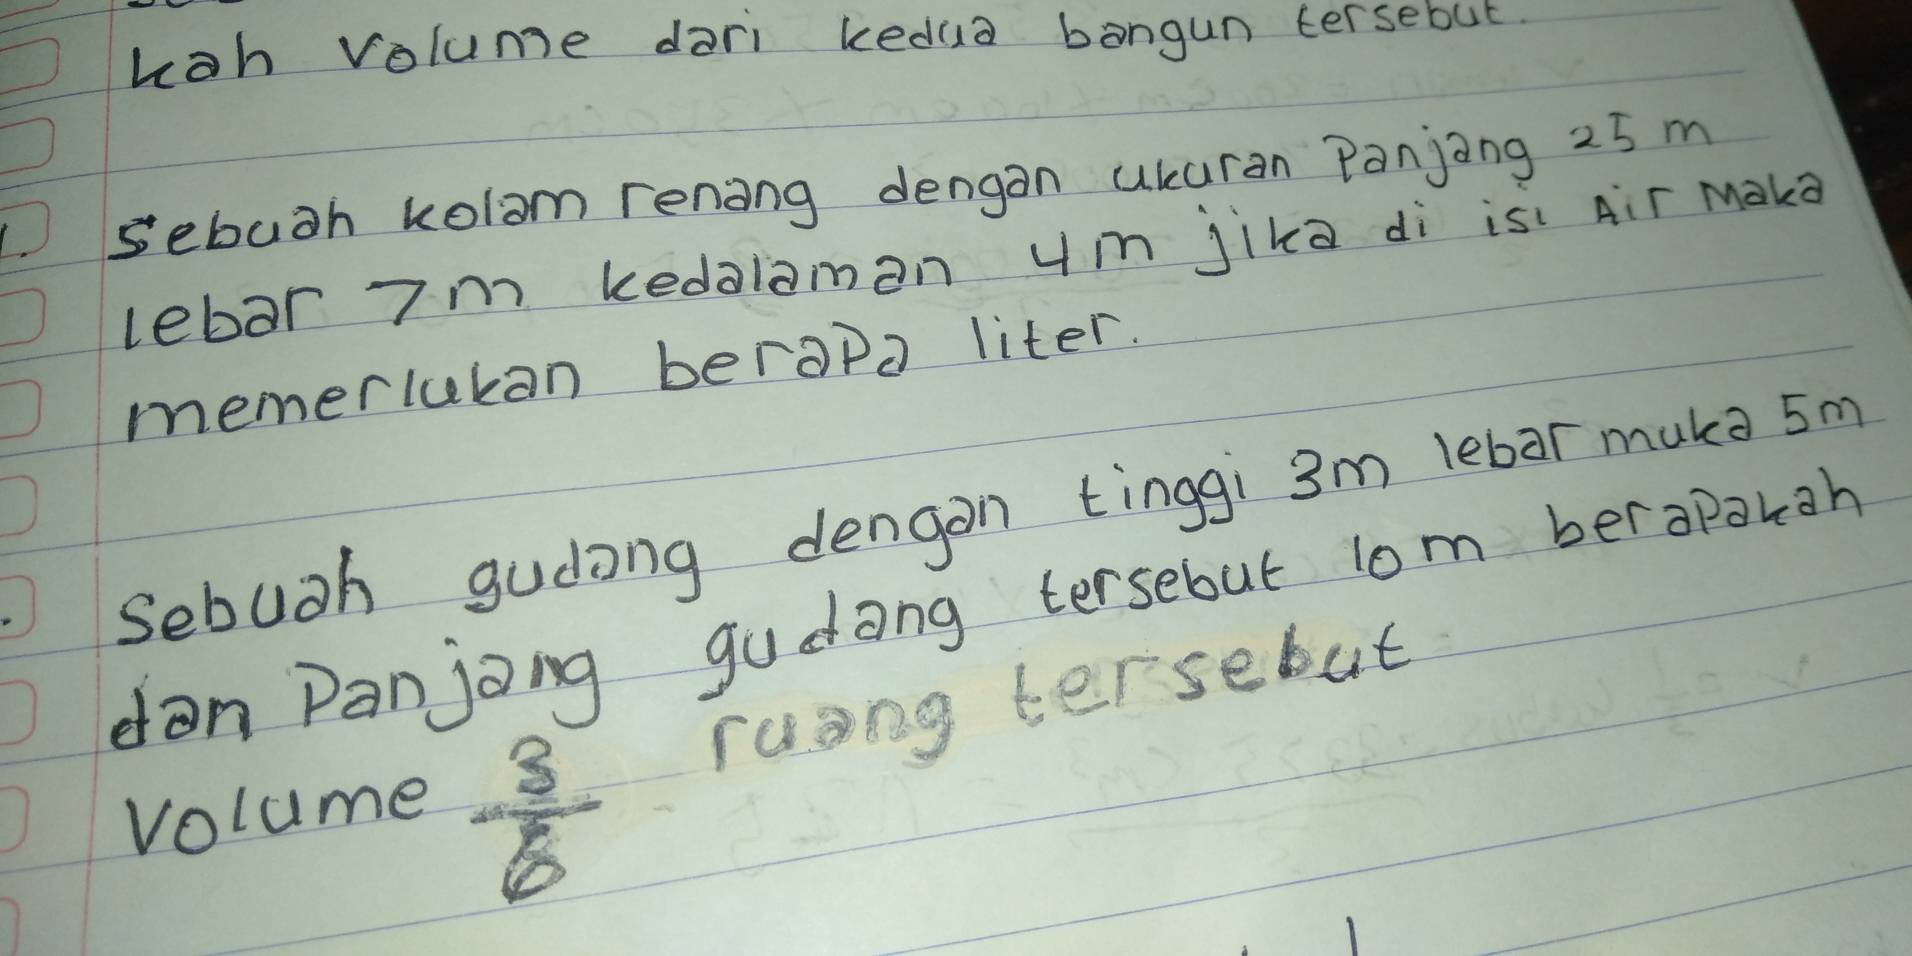 kah volume dari kedua bangun tersebut.
1. sebuah kolam renang dengan ukuran Panjang 25 m
lebar 7m kedalaman 4m jika di isi Air Maka
memerlukan berapa liter.
Sebuah gudang dengan tinggi 3m lebar muka 5m
dan Panjang gudang tersebut 10 m berapakah
Volume 3/8 ruang tersebut